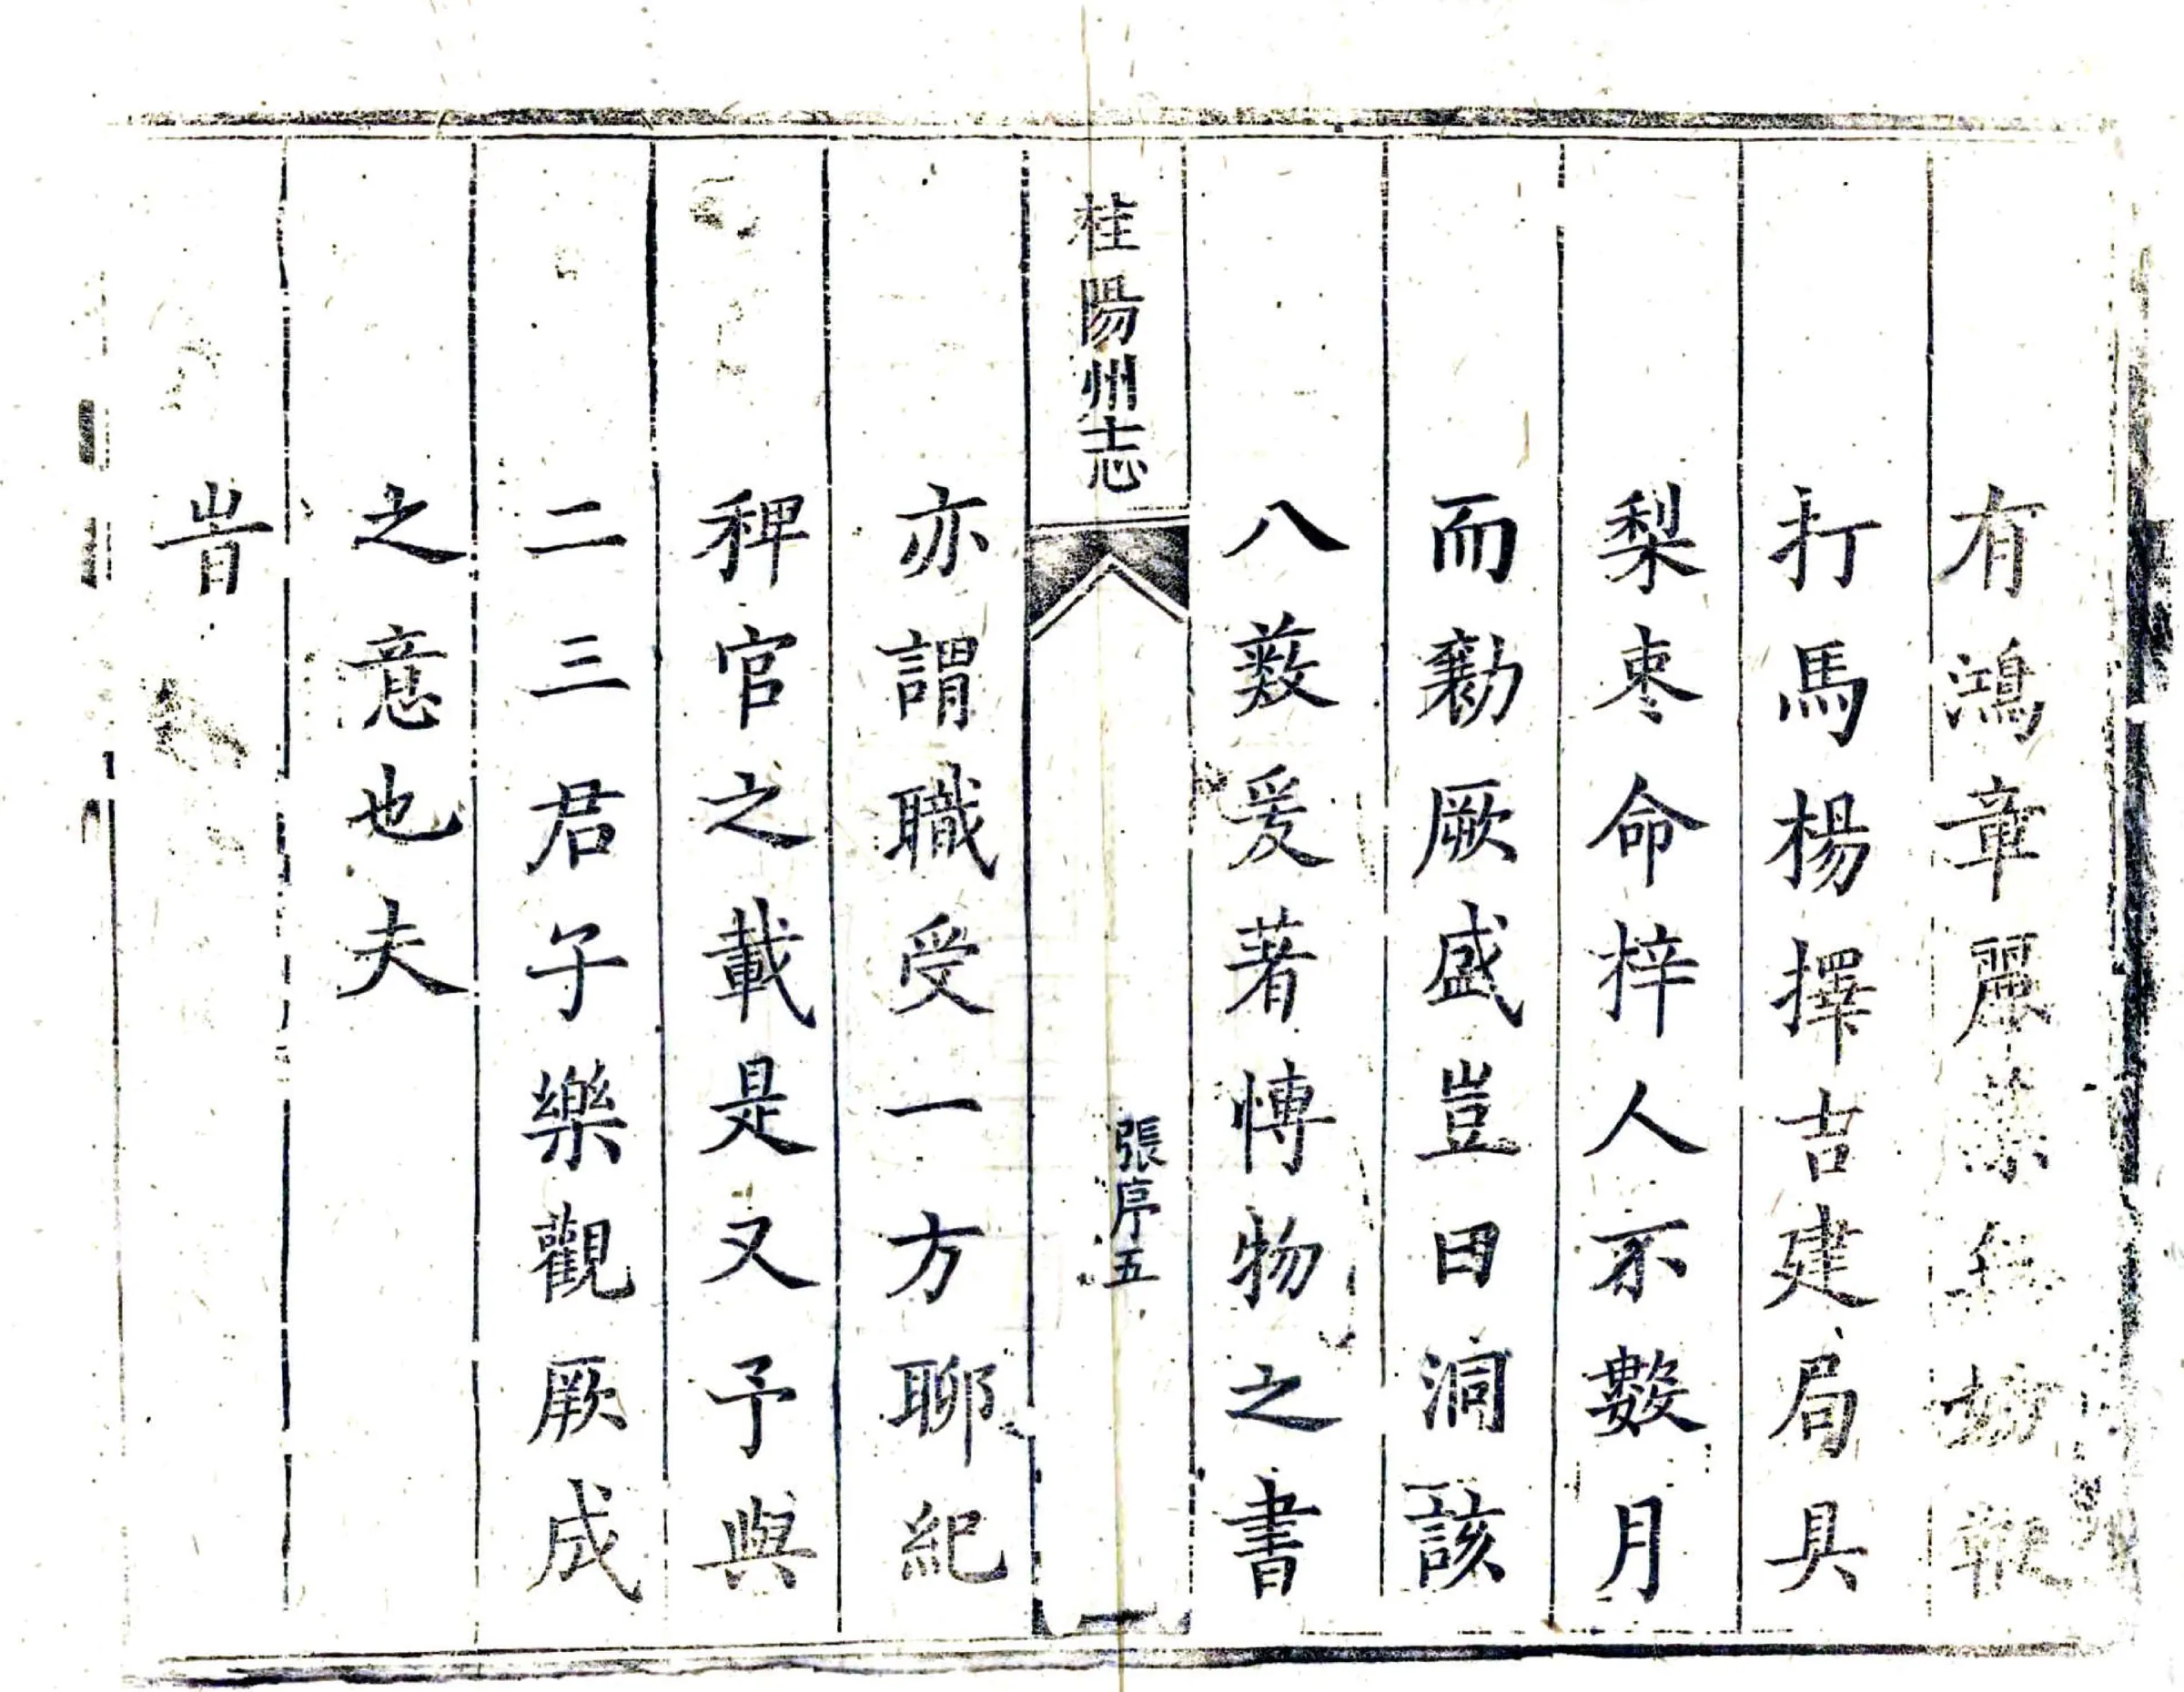 有鴻章麗
打馬楊擇吉建局具
梨枣命梓人不數月
而勷厥盛豈曰洞該
八薮爰著愽物之書
桂陽州志
張序五
亦謂職受一方聊紀
稗官之載是又予與
二三君子樂觀厥成
之意也夫
旹